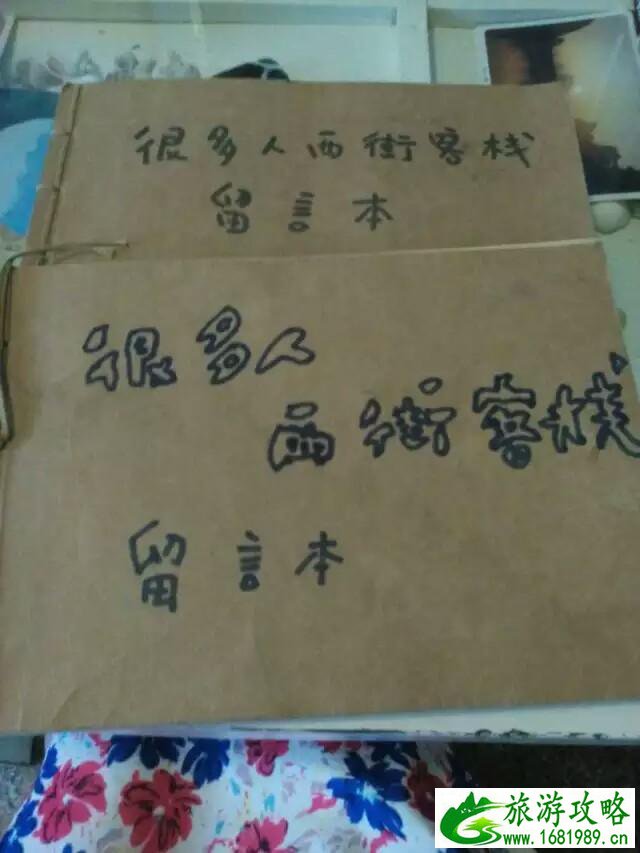 很多人西街客栈
留言本
很多人
西街客栈
留言本
旅游攻略
www.1681989.cn